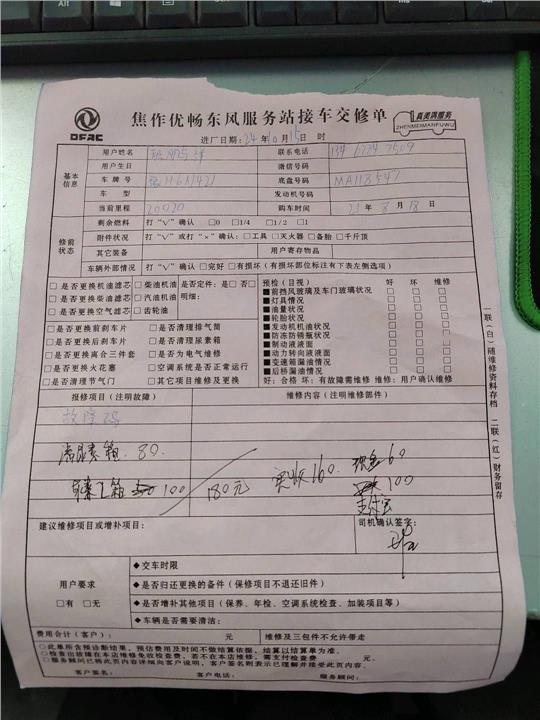 Alt
DFAC
焦作优畅东风服务站接车交修单
真美满服务
ZHENMEIMANFUWU
进厂日期: 24 年 10 月 15 日 时
基本信息
用户姓名 联系电话
用户生日 微信号码
车牌号 底盘号码 MA118547
车型 发动机号码
当前里程 20920 购车时间 21 年 8 月 18 日
修前状态
剩余燃料 打“√”确认 □0 □1/4 □1/2 □1
附件状况 打“√”或打“×”确认: □工具 □灭火器 □备胎 □千斤顶
其它装备 用户寄存物品
车辆外部情况 打“√”确认 □完好 □有损坏(有损坏部位标注有下表左侧选项)
□是否更换机油滤芯 □柴油机油 是否定件: 是□ 否□
□是否更换柴油滤芯 □汽油机油 明细:
□是否更换空气滤芯 □齿轮油
预检(目视) 好 坏 维修
■前挡风玻璃及车门玻璃状况 □ □ □
■灯具情况 □ □ □
■油量状况 □ □ □
■轮胎状况 □ □ □
■发动机机油状况 □ □ □
■防冻防锈瓶状况 □ □ □
■制动液液面 □ □ □
■动力转向液液面 □ □ □
■变速箱漏油情况 □ □ □
■后桥漏油情况 □ □ □
好: 合格 坏: 有故障需维修 维修: 用户确认维修
□是否更换前刹车片 □是否清理排气筒
□是否更换后刹车片 □是否清理尿素箱
□是否更换离合三件套 □是否为电气维修
□是否更换火花塞 □空调系统是否正常运行
□是否清理节气门 □其它项目维修及更换
报修项目(注明故障) 维修内容(注明维修部件)
故障码
清尿素箱 80.
100 180元 实收160. 现金60
100
支付宝
建议维修项目或增补项目:
司机确认签字:
用户要求
□有 □无
◆交车时限
◆是否归还更换的备件(保修项目不退还旧件)
◆是否增补其他项目(保养、年检、空调系统检查、加装项目等)
◆车辆是否需要清洁:
费用合计(客户): 元 维修及三包件不允许带走
○此单所含预诊断结果,预估费用及时间不做结算依据,结算以结算单为准。
○检查出故障在本店维修免收检查费,若不在本店维修,需支付检查费 元。
○服务顾问已将此页内容详细向客户说明,客户签名则表示已理解并接受此页内容。
客户签名: 客户电话: 服务顾问:
一联(白)随维修资料存档 二联(红)财务留存